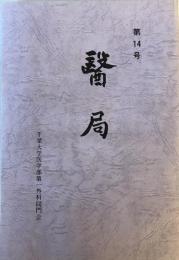 第14号
醫局
千葉大学医学部第一外科同門会